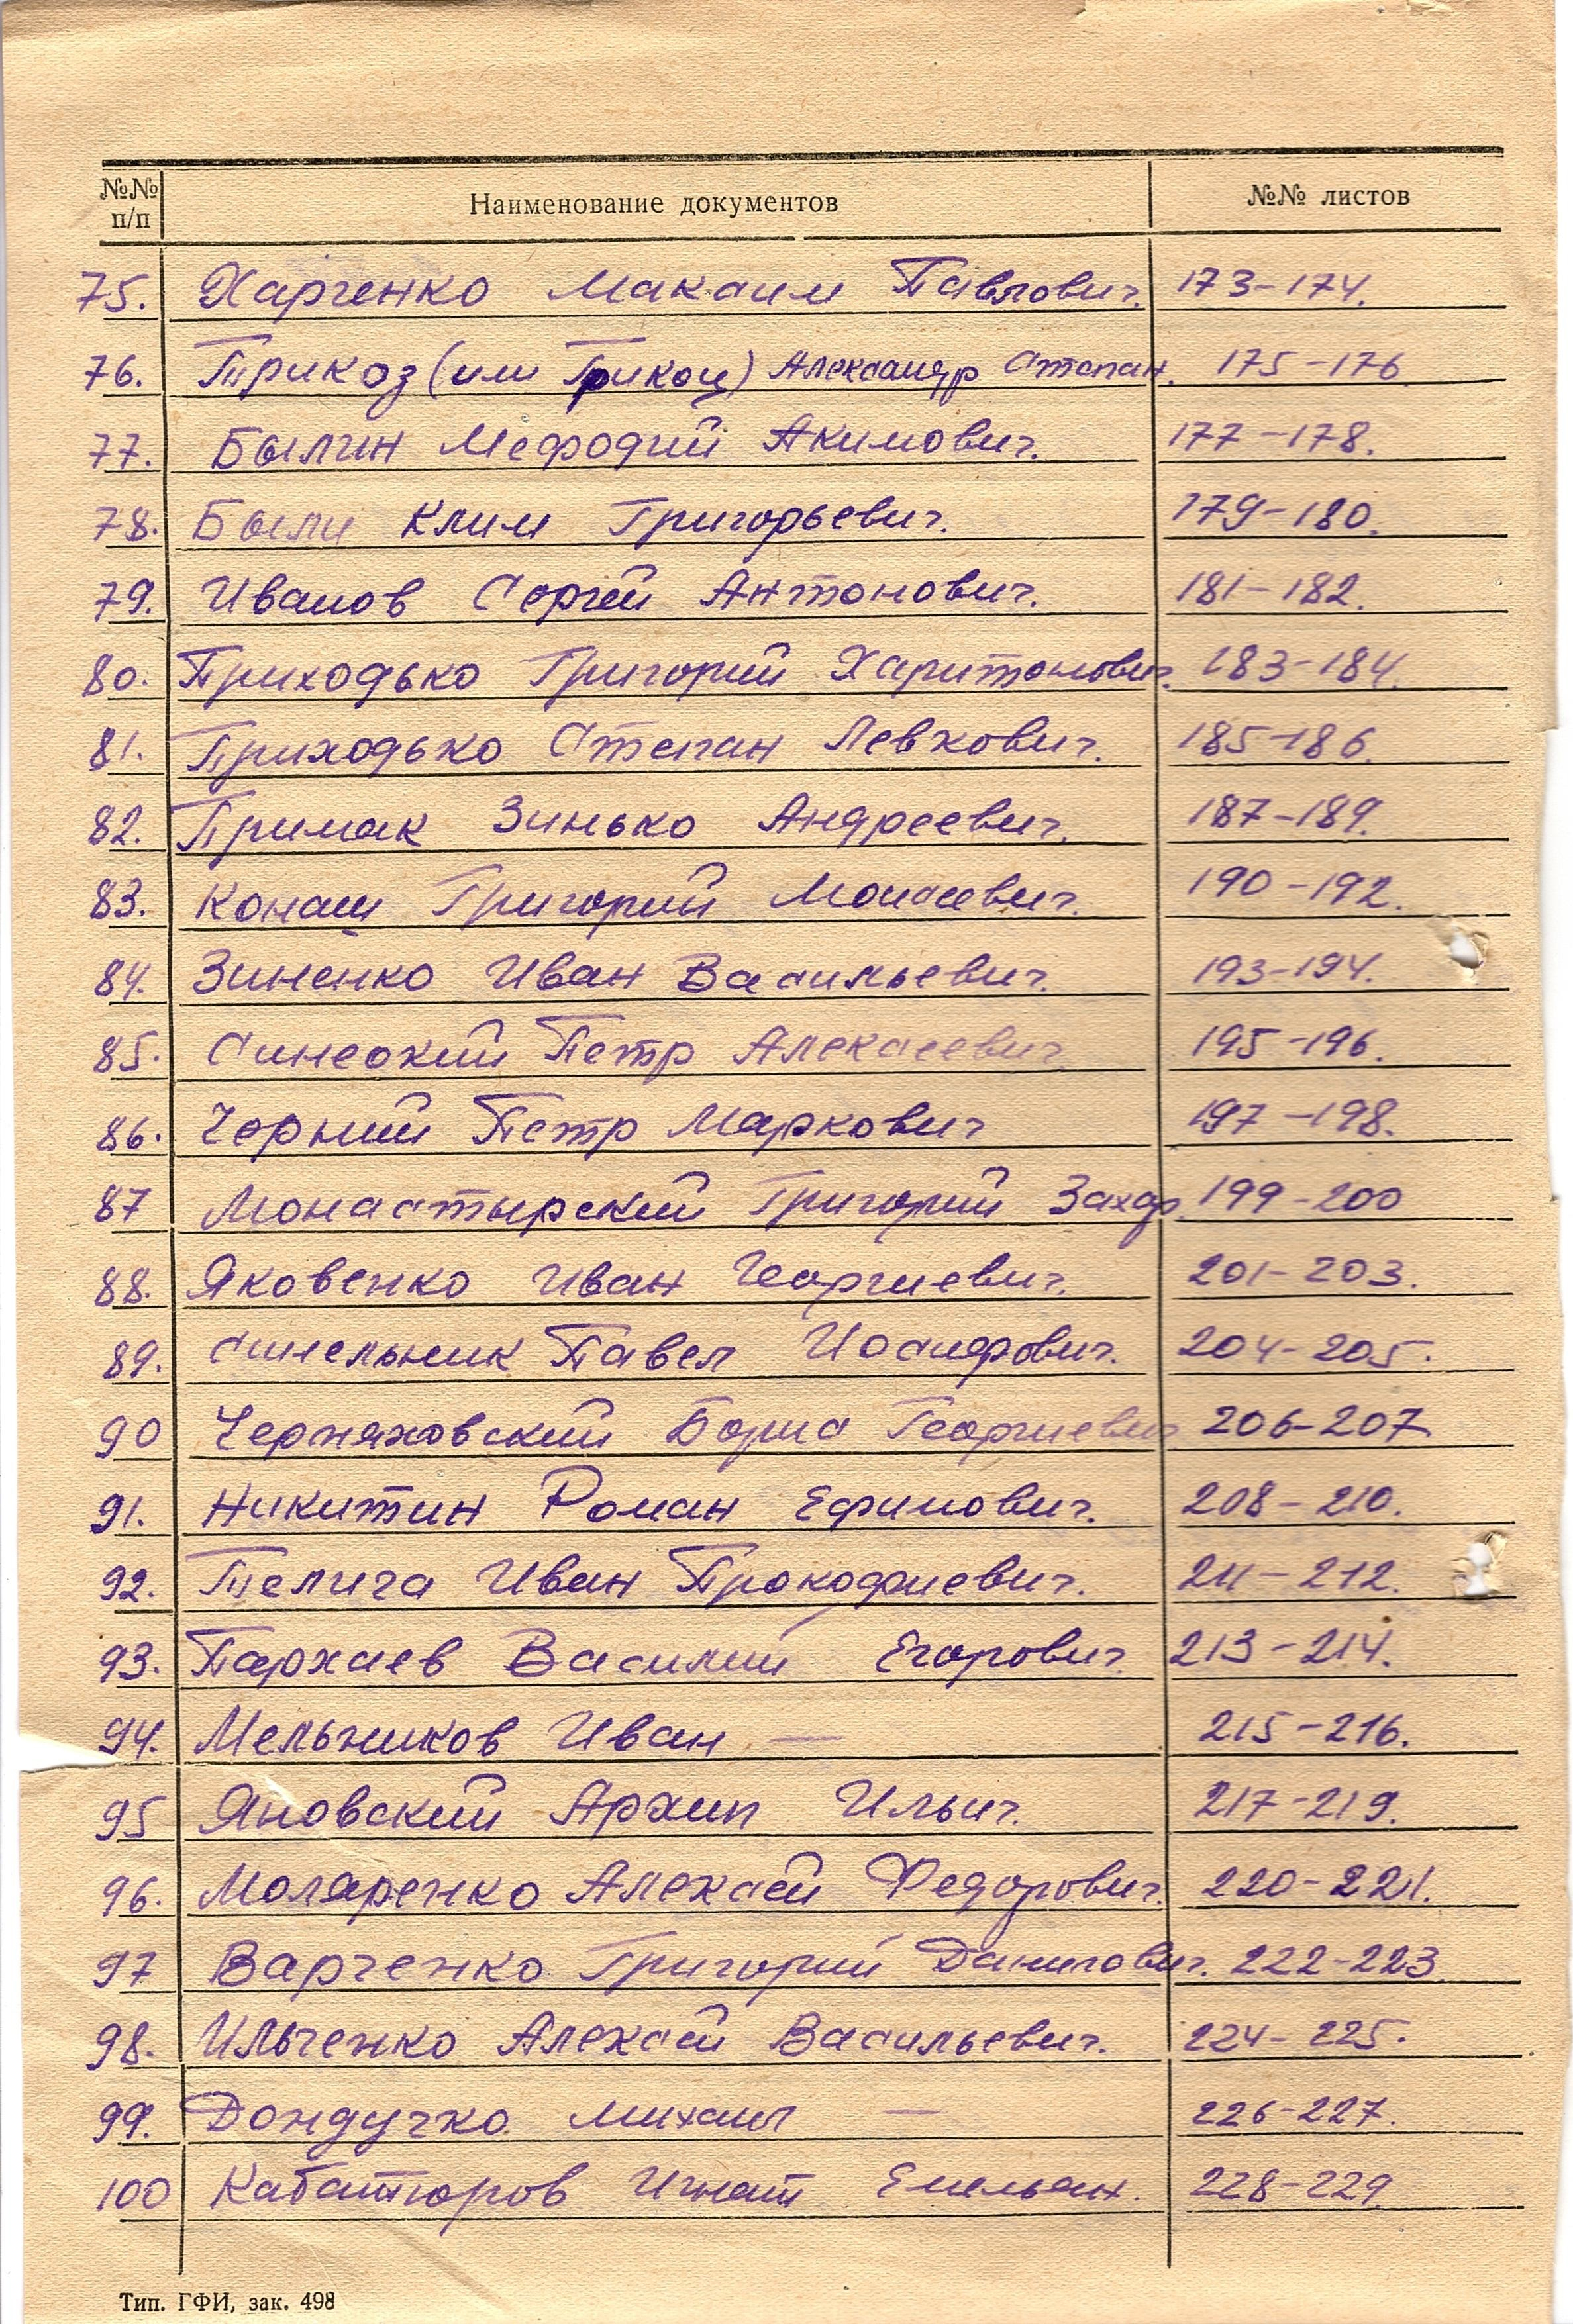 №№ п/п Наименование документов №№ листов
75. Харченко Максим Павлович. 173-174.
76. Трикоз (или Грикоц) Александр Степан. 175-176
77. Былин Мефодий Акимович. 177-178.
78. Были Клим Григорьевич. 179-180.
79. Иванов Сергей Антонович. 181-182.
80. Приходько Григорий Харитонович. 183-184.
81. Приходько Степан Левкович. 185-186.
82. Примак Зинько Андреевич. 187-189.
83. Конаш Григорий Моисеевич. 190-192.
84. Зиненко Иван Васильевич. 193-194.
85. Синеокий Петр Алексеевич 195-196.
86. Чорний Петр Маркович 197-198.
87 Монастырский Григорий Захар. 199-200
88. Яковенко Иван Георгиевич. 201-203.
89. Синельник Павел Иосифович. 204-205.
90 Черняховский Борис Георгиевич 206-207
91. Никитин Роман Ефимович. 208-210.
92. Телига Иван Прокофиевич. 211-212.
93. Пархаев Василий Егорович. 213-214.
94. Мельников Иван — 215-216.
95 Яновский Архип Ильич. 217-219.
96. Моляренко Алексей Федорович. 220-221.
97 Варченко Григорий Данилович. 222-223.
98. Ильченко Алексей Васильевич. 224-225.
99. Дондучко Михаил — 226-227.
100 Кабатюров Игнат Емельян. 228-229.
Тип. ГФИ, зак. 498